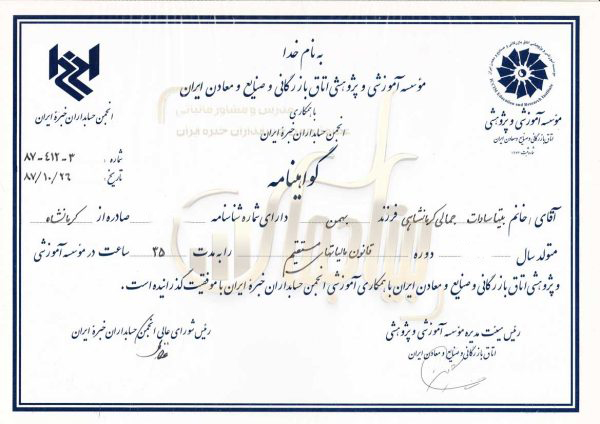 به نام خدا
مؤسسه آموزشی و پژوهشی اتاق بازرگانی و صنایع و معادن ایران
با همکاری
انجمن حسابداران خبرهٔ ایران
انجمن حسابداران خبرهٔ ایران
مؤسسه آموزشی و پژوهشی
اتاق بازرگانی و صنایع و معادن ایران
ICCIM Education and Research Institute
مدرس و مشاور مالیاتی
شماره: ۸۷-۴۱۲-۳
تاریخ: ۸۷/۱۰/۲۶
گواهینامه
آقای / خانم بیتا سادات جمالی کرمانشاهی فرزند بهمن دارای شماره شناسنامه صادره از کرمانشاه
متولد سال دوره قانون مالیاتهای مستقیم را به مدت ۳۵ ساعت در مؤسسه آموزشی
و پژوهشی اتاق بازرگانی و صنایع و معادن ایران با همکاری آموزشی انجمن حسابداران خبرهٔ ایران با موفقیت گذرانیده است.
رئیس هیئت مدیره مؤسسه آموزشی و پژوهشی
اتاق بازرگانی و صنایع و معادن ایران
رئیس شورای عالی انجمن حسابداران خبرهٔ ایران